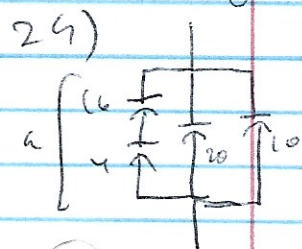 24)
16
a 4 20 10